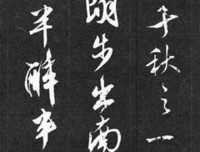 千秋之一
步出南
半醉半